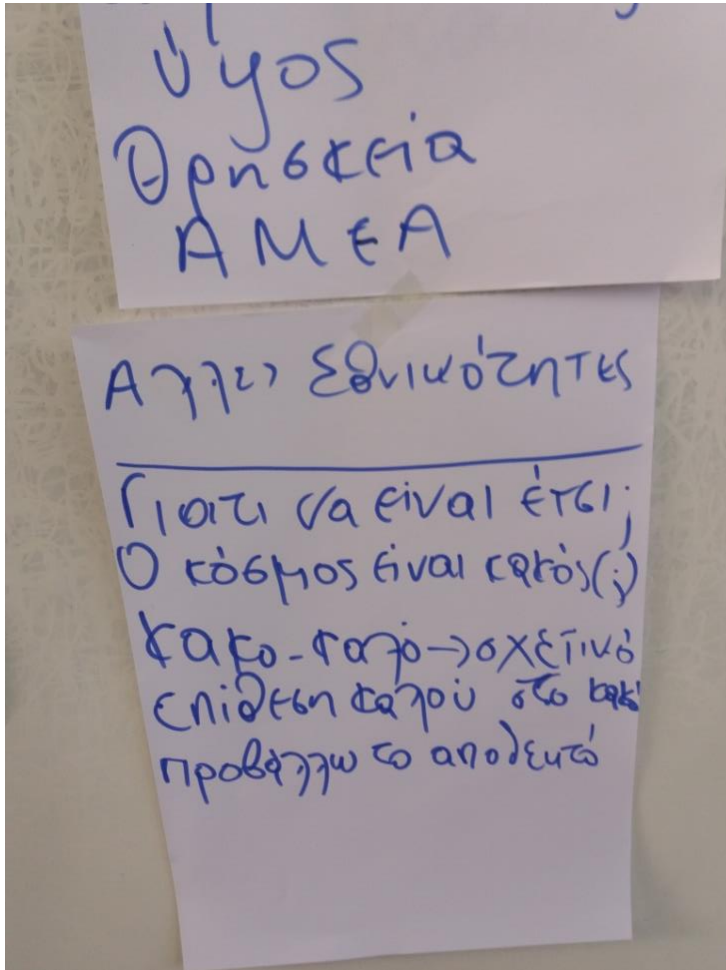 ύψος
Θρησκεία
ΑΜΕΑ
Άλλες εθνικότητες
Γιατι να είναι έτσι;
Ο κόσμος είναι κακός(;)
κακο-καλό→σχετικό
επίθεση καλού στο κακό
προβάλλω το αποδεκτό